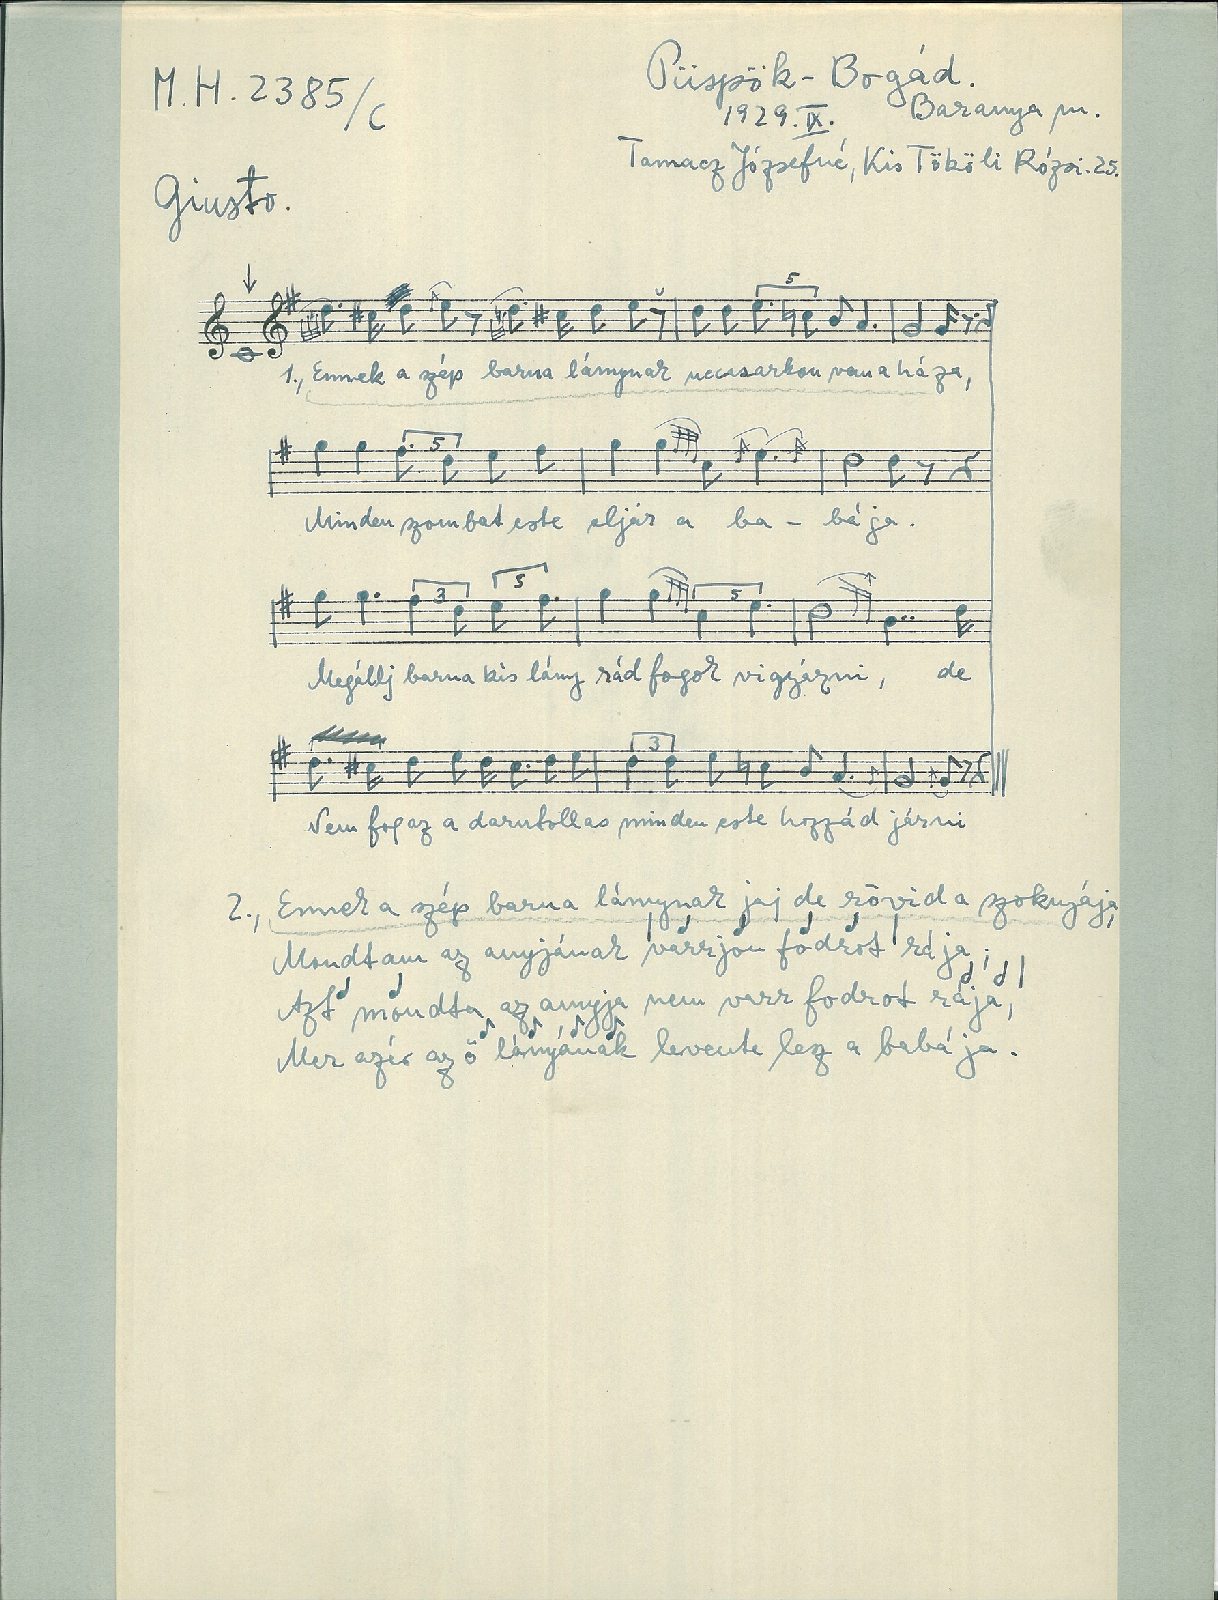 M.H. 2385/c
Püspök-Bogád.
1929. IX. Baranya m.
Tamacz Józsefné, Kis Tököli Rózsi. 25.
Giusto.
5
1., Ennek a szép barna lánynak uccasarkon van a háza,
5
Minden zombat este eljár a ba - bája.
3 5 5
Megállj barna kis lány rád fogok vigyázni, de
3
Nem fog az a darutollas minden este hozzád járni
2., Ennek a szép barna lánynak jaj de rövid a szoknyája,
Mondtam az anyjának varrjon fodrot rája;
Azt mondta az anyja nem varr fodrot rája,
Mer azér az ő lányának levente lesz a babája.